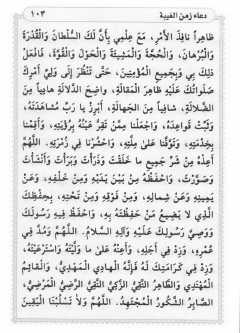 دعاء زمن الغيبة ١٠٣
ظاهراً نافذ الأمر، مع علمي بأن لك السلطان والقدرة
والبرهان، والحجة والمشيئة والحول والقوة، فافعل
ذلك بي وبجميع المؤمنين، حتى ننظر إلى ولي أمرك
صلواتك عليه ظاهر المقالة، واضح الدلالة هادياً من
الضلالة، شافياً من الجهالة، أبرز يا رب مشاهدته،
وثبت قواعده، واجعلنا ممن تقر عينه برؤيته، وأقمنا
بخدمته، وتوفنا على ملته، واحشرنا في زمرته، اللهم
أعذه من شر جميع ما خلقت وذرأت وبرأت وأنشأت
وصورت، واحفظه من بين يديه ومن خلفه، وعن
يمينه وعن شماله، ومن فوقه ومن تحته، بحفظك
الذي لا يضيع من حفظته به، واحفظ فيه رسولك
ووصي رسولك عليه وآله السلام. اللهم ومد في
عمره، وزد في أجله، وأعنه على ما وليته واسترعيته،
وزد في كرامتك له فإنه الهادي المهدي، والقائم
المهتدي والطاهر التقي الزكي النقي الرضي المرضي،
الصابر الشكور المجتهد. اللهم ولا تسلبنا اليقين